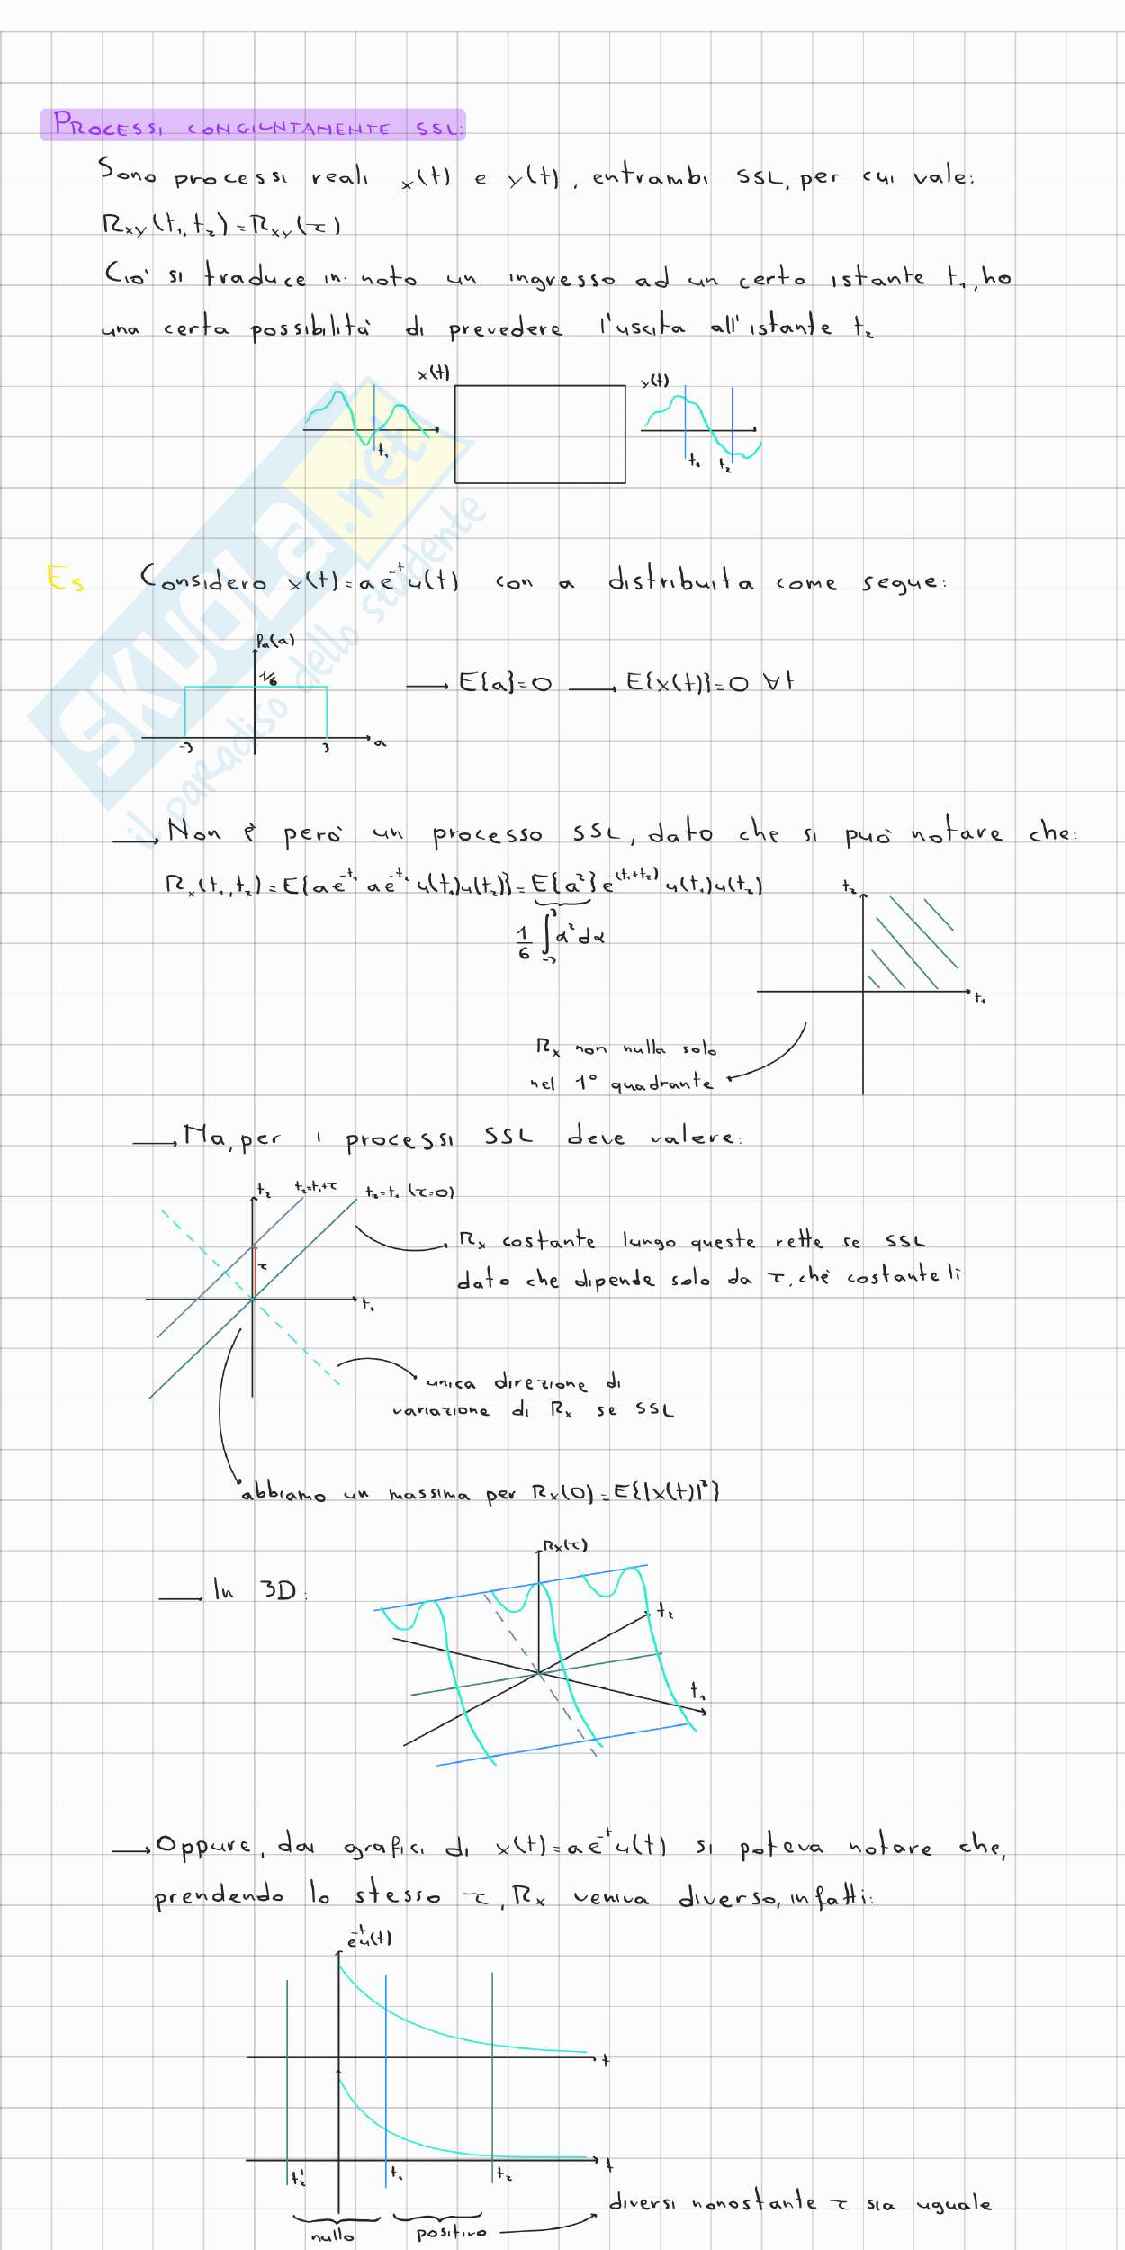 PROCESSI CONGIUNTAMENTE SSL:
Sono processi reali x(t) e y(t), entrambi SSL, per cui vale:
Rxy(t₁,t₂)=Rxy(τ)
Cio' si traduce in: noto un ingresso ad un certo istante t₁, ho
una certa possibilità di prevedere l'uscita all'istante t₂
x(t)
y(t)
t₁
t₁ t₂
Es Considero x(t)=ae⁻ᵗu(t) con a distribuita come segue:
Pa(a)
1/6
→ E{a}=0 → E{x(t)}=0 ∀t
-3 3 a
→ Non è però un processo SSL, dato che si può notare che:
Rx(t₁,t₂)=E{ae^-t₁ ae^-t₂ u(t₁)u(t₂)}=E{a²}e^(t₁+t₂) u(t₁)u(t₂)
t₂
1/6 ∫₋₃³ α² dα
t₁
Rx non nulla solo
nel 1° quadrante
→ Ma, per i processi SSL deve valere:
t₂ t₂=t₁+τ t₂=t₁ (τ=0)
Rx costante lungo queste rette se SSL
τ
dato che dipende solo da τ, che costante lì
t₁
unica direzione di
variazione di Rx se SSL
abbiamo un massima per Rx(0)=E{|x(t)|²}
Rx(τ)
→ In 3D:
t₂
t₁
→ Oppure, dai grafici di x(t)=ae⁻ᵗu(t) si poteva notare che,
prendendo lo stesso τ, Rx veniva diverso, infatti:
e⁻ᵗu(t)
t
t
t₂' t₁ t₂
diversi nonostante τ sia uguale
nullo positivo
SKUOLA.net
il paradiso dello studente